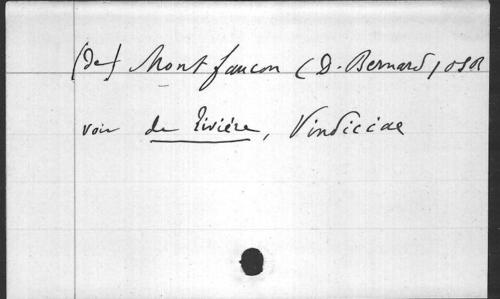 (de) Montfaucon (D. Bernard, OSB
voir de Rivière, Vindiciae